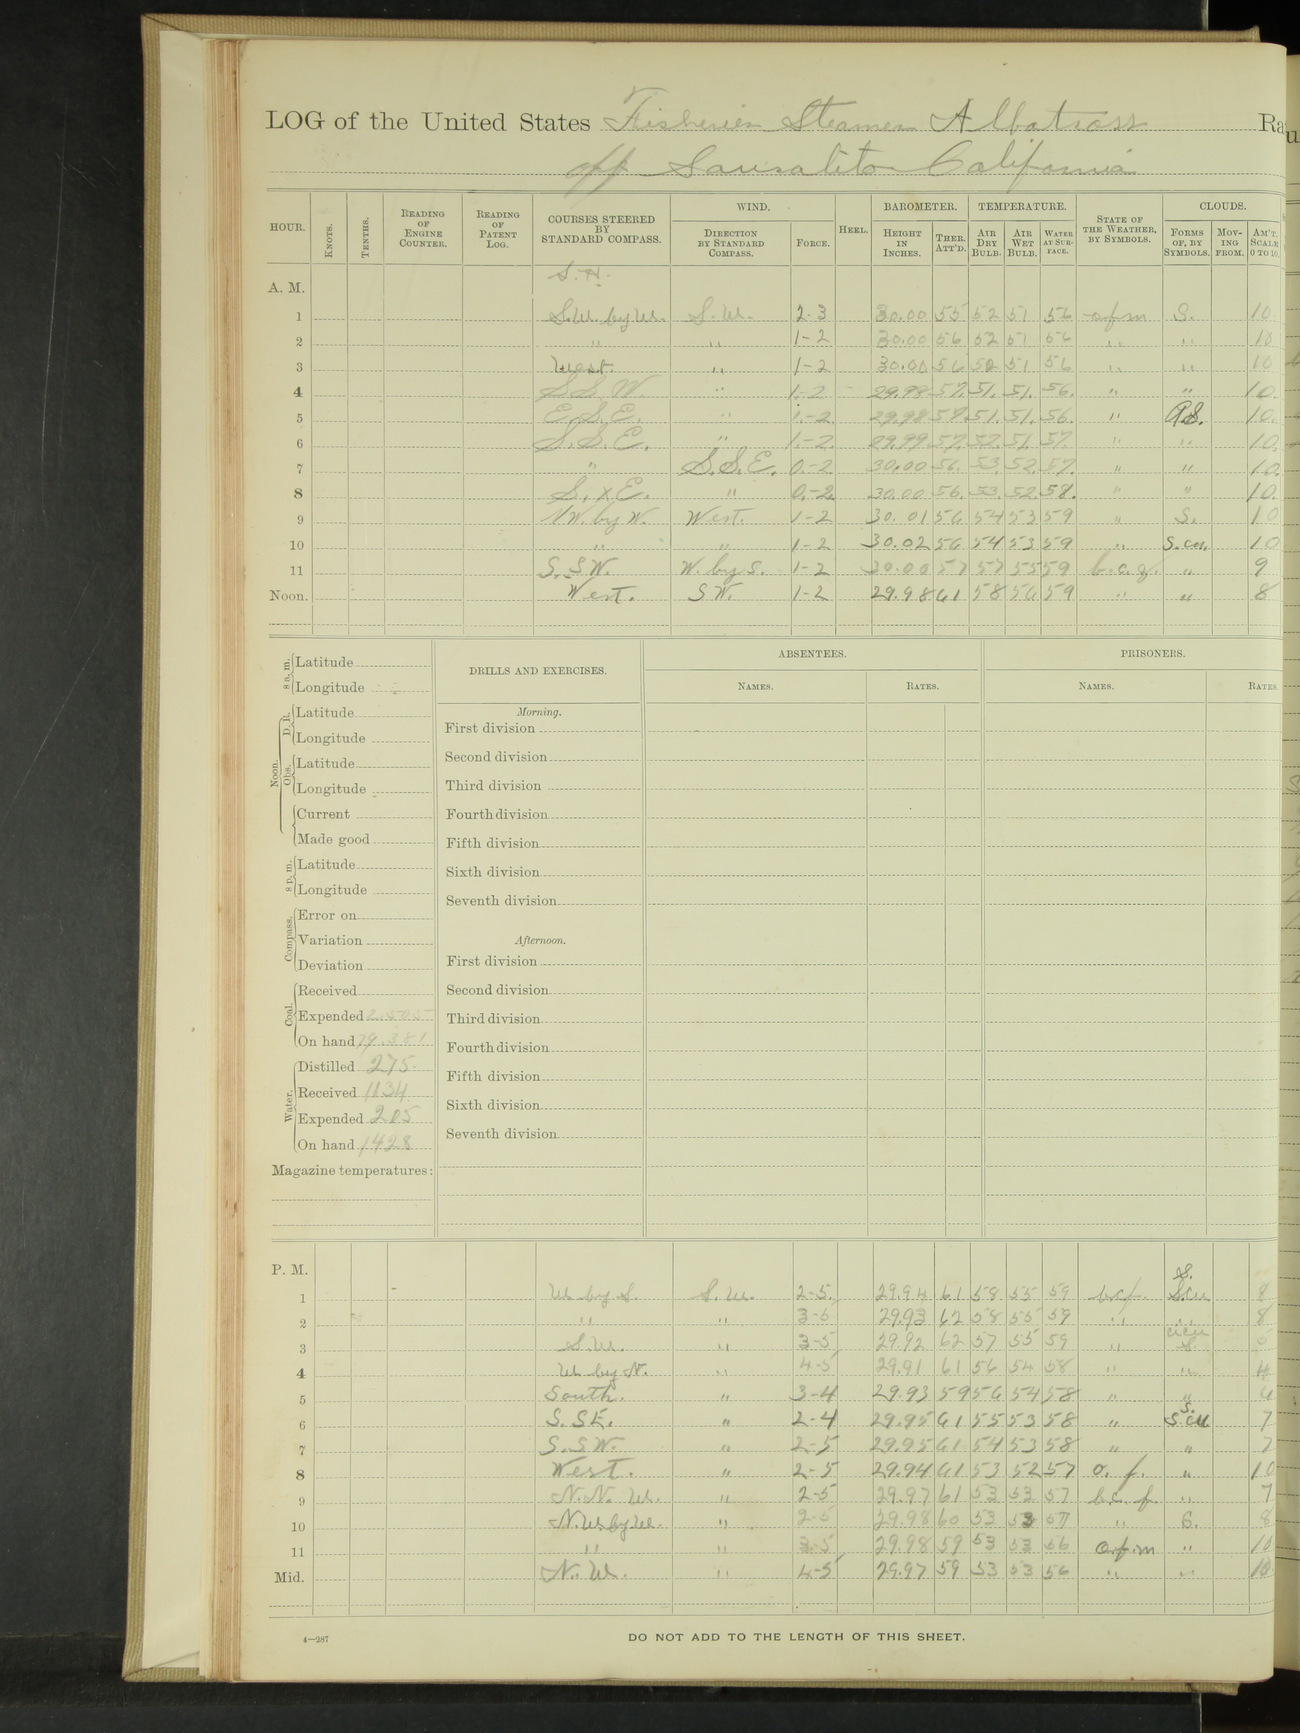 LOG of the United States Fisheries Steamer Albatross Ra
off Sausalito California
HOUR. KNOTS. TENTHS. READING OF ENGINE COUNTER. READING OF PATENT LOG. COURSES STEERED BY STANDARD COMPASS. WIND. DIRECTION BY STANDARD COMPASS. FORCE. HEEL. BAROMETER. HEIGHT IN INCHES. THER. ATT'D. TEMPERATURE. AIR DRY BULB. AIR WET BULB. WATER AT SURFACE. STATE OF THE WEATHER, BY SYMBOLS. CLOUDS. FORMS OF, BY SYMBOLS. MOVING FROM. AM'T. SCALE 0 TO 10.
S.H.
A. M.
1 S.W. by W. S.W. 2-3 30.00 55 52 51 56 o.f.m S. 10
2 " " 1-2 30.00 56 52 51 56 " " 10
3 West. " 1-2 30.00 56 52 51 56 " " 10
4 S.S.W. " 1-2 29.98 57. 51. 51. 56. " " 10.
5 E.S.E. " 1-2 29.98 57. 51. 51. 56. " A.S. 10.
6 S.S.E. " 1-2 29.99 57. 52. 51. 57. " " 10.
7 " S.S.E. 0-2 30.00 56. 53. 52. 57. " " 10.
8 S. x E. " 0-2 30.00 56. 53. 52. 58. " " 10.
9 NW. by W. West. 1-2 30.01 56 54 53 59 " S. 10
10 " " 1-2 30.02 56 54 53 59 " S.cu. 10
11 S.S.W. W. by S. 1-2 30.00 57 57 55 59 b.c.g. " 9
Noon. West. SW. 1-2 29.98 61 58 56 59 " " 8
8 a. m. Latitude
Longitude
Noon. D. R. Latitude
Longitude
Obs. Latitude
Longitude
Current
Made good
8 p. m. Latitude
Longitude
Compass. Error on
Variation
Deviation
Coal. Received
Expended 2.505
On hand 79.381
Water. Distilled 275
Received 1134
Expended 205
On hand 1428
Magazine temperatures:
DRILLS AND EXERCISES.
Morning.
First division
Second division
Third division
Fourth division
Fifth division
Sixth division
Seventh division
Afternoon.
First division
Second division
Third division
Fourth division
Fifth division
Sixth division
Seventh division
ABSENTEES.
NAMES. RATES.
PRISONERS.
NAMES. RATES.
P. M.
S.
1 W by S. S.W. 2-5. 29.94 61 58 55 59 bcf. S.cu 8
2 " " 3-5 29.93 62 58 55 59 " " 8
cicu
3 S.W. " 3-5 29.92 62 57 55 59 " S.
4 W by N. " 4-5 29.91 61 56 54 58 " " 4
5 South. " 3-4 29.93 59 56 54 58 " " 4
S.
6 S.SE. " 2-4 29.95 61 55 53 58 " S.cu 7
7 S.SW. " 2-5 29.95 61 54 53 58 " " 7
8 West. " 2-5 29.94 61 53 52 57 o. f. " 10
9 N.N.W. " 2-5 29.97 61 53 53 57 b.c. f. " 7
10 N.W by W. " 2-5 29.98 60 53 53 57 " S. 8
11 " " 3-5 29.98 59 53 53 56 o.f.m " 10
Mid. N.W. " 4-5 29.97 59 53 53 56 " " 10
4—287
DO NOT ADD TO THE LENGTH OF THIS SHEET.